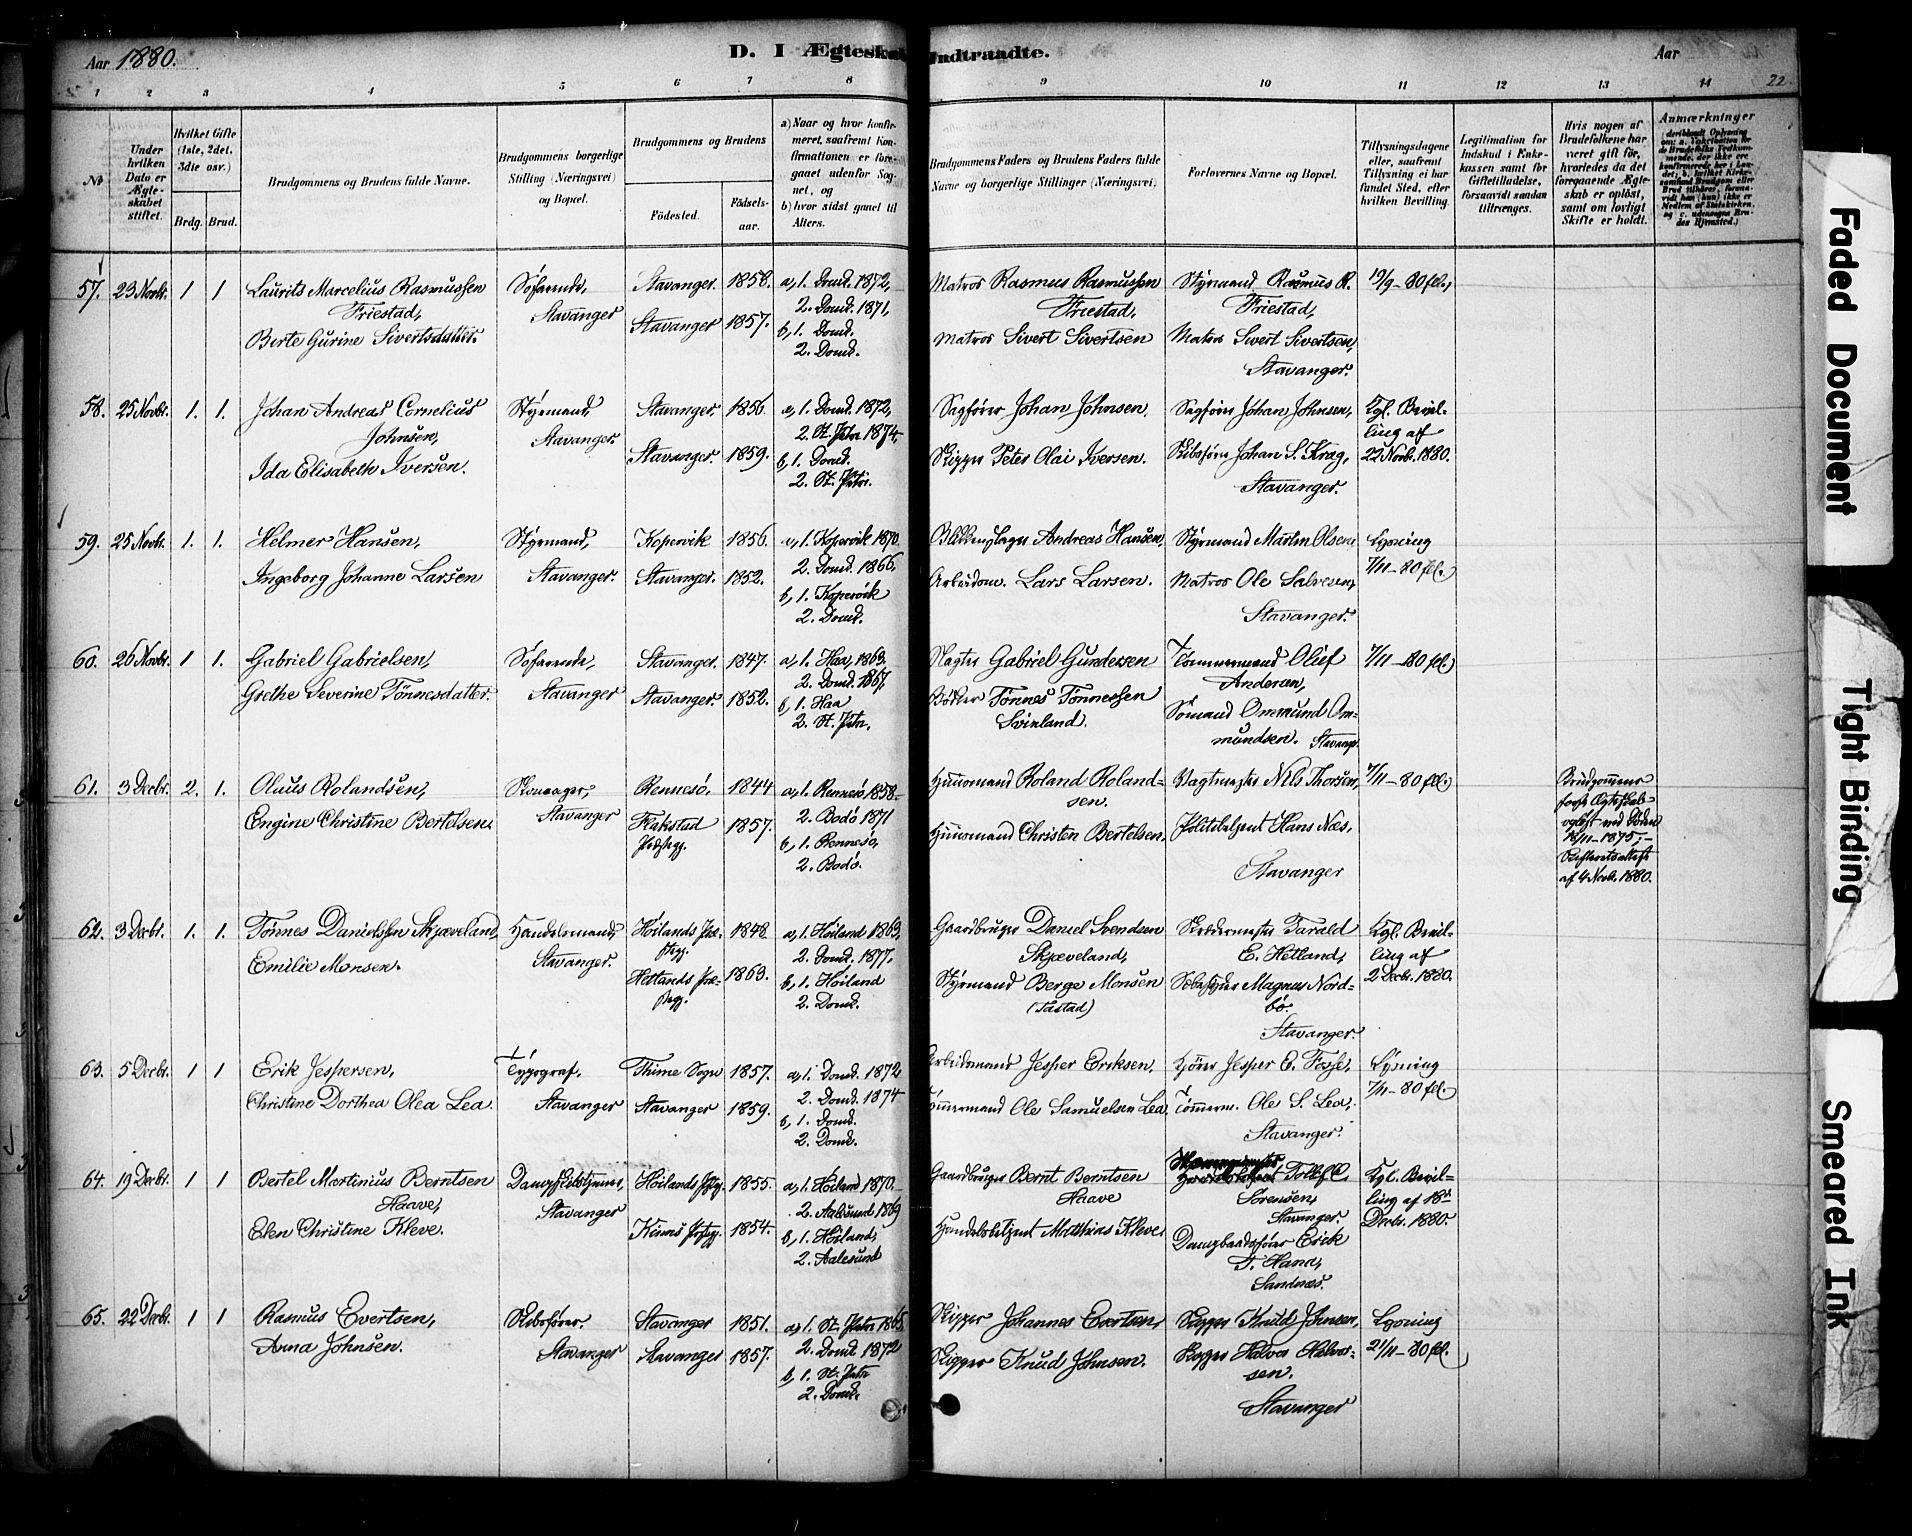 Aar 1880. D. I Ægteskab Indtraadte. Aar
1 2 3 4 5 6 7 8 9 10 11 12 13 14 22
No
Under hvilken Dato er Ægteskabet stiftet.
Hvilket Gifte (1ste, 2det, 3die osv.)
Brdg. Brud.
Brudgommens og Brudens fulde Navne.
Brudgommens borgerlige Stilling (Næringsvei) og Bopæl.
Brudgommens og Brudens
Fødested. Fødselsaar.
a) Naar og hvor konfirmeret, saafremt Konfirmationen er foregaaet udenfor Sognet, og
b) hvor sidst gaaet til Alters.
Brudgommens Faders og Brudens Faders fulde Navne og borgerlige Stillinger (Næringsvei).
Forlovernes Navne og Bopæl.
Tillysningsdagene eller, saafremt Tillysning ei har fundet Sted, efter hvilken Bevilling.
Legitimation for Indskud i Enkekassen samt for Giftetilladelse, forsaavidt saadan tiltrænges.
Hvis nogen af Brudefolkene har været gift før, hvorledes da det foregaaende Ægteskab er opløst, samt om lovligt Skifte er holdt.
Anmærkninger
57. 23 Novbr. 1 1 Laurits Marcelius Rasmussen Friestad, Søfarende, Stavanger. 1858. a, 1. Domk. 1872, Matros Rasmus Rasmussen Friestad, Styrmand Rasmus R. Friestad, 19/9-80 fl.,
Berte Gurine Sivertsdatter. Stavanger Stavanger 1857. 2. Domk. 1871, b, 1. Domk. 2. Domk. Matros Sivert Sivertsen Matros Sivert Sivertsen, Stavanger.
58. 25 Novbr. 1. 1. Johan Andreas Cornelius Johnsen, Styrmand, Stavanger. 1856. a, 1. Domk. 1872, Sagfører Johan Johnsen, Sagfører Johan Johnsen, Kgl. Bevilling af 22 Novbr. 1880.
Ida Elisabeth Iversen. Stavanger Stavanger. 1859. 2. St. Petri 1874, b, 1. Domk. 2. St. Petri. Skipper Peter Olai Iversen. Skibsfører Johan S. Krag, Stavanger.
59. 25 Novbr. 1. 1. Helmer Hansen, Styrmand, Kopervik 1856. a, 1. Kopervik 1870 Blikkenslager Andreas Hansen, Styrmand Martin Olsen, Lysning 7/11-80 fl.
Ingeborg Johanne Larsen Stavanger. Stavanger. 1852. 2. Domk. 1866, b, 1. Kopervik 2. Domk. Arbeidsm. Lars Larsen. Matros Ole Salvesen, Stavanger.
60. 26 Novbr. 1 1. Gabriel Gabrielsen, Søfarende, Stavanger. 1847. a, 1. Haa, 1863. Vægter Gabriel Gundersen Tømmermand Oluf Andersen, 7/11-80 fl.
Grethe Severine Tønnesdatter. Stavanger Stavanger. 1852. 2. Domk. 1867, b, 1. Haa 2. St. Petri. Bødker Tønnes Tønnessen Svinland. Sømand Ommund Ommundsen. Stavanger
61. 3 Decbr. 2. 1. Olaus Rolandsen, Skomager, Rennesø. 1844 a, 1. Rennesø, 1858. Huusmand Roland Rolandsen. Vagtmester Nils Thorsen, 7/11-80 fl.
Engine Christine Bertelsen. Stavanger Flakstad Præstegj. 1857. 2. Bodø 1871 b, 1. Rennesø, 2. Bodø. Huusmand Christen Bertelsen. Politibetjent Hans Næs, Stavanger
Brudgommens første Ægteskab opløst ved Døden 18/11-1875; Skifteretsattest af 4 Novb. 1880.
62. 3 Decbr. 1. 1. Tønnes Danielssen Skjæveland, Handelsmand, Høilands Præstegj. 1848 a, 1. Høiland 1863, Gaardbruger Daniel Svendsen Skjæveland, Skræddermester Tarald E. Hetland, Kgl. Bevilling af 2 Decbr. 1880.
Emilie Monsen. Stavanger. Hetlands Præstegj. 1863. 2. Domk. 1877, b, 1. Høiland 2. Domk. Styrmand Berge Monsen (Tastad) Magnus Nordbø. Stavanger.
63. 5 Decbr. 1 1 Erik Jespersen, Typograf. Thime Sogn 1857. a, 1. Domk. 1872 Arbeidsmand Jesper Eriksen. Jesper E. Fosse, Lysning 7/11-80 fl.
Christine Dorthea Olea Lea. Stavanger Stavanger 1859. 2. Domk. 1874 b, 1. Domk. 2. Domk. Tømmermand Ole Samuelsen Lea, Tømmerm. Ole S. Lea, Stavanger.
64. 19 Decbr. 1 1 Bertel Martinius Berntsen Haave, Stavanger Høilands Prstgj. 1855. a, 1. Høiland 1870. Gaardbruger Bernt Berntsen Haave Tollef Sørensen, Stavanger. Kgl. Bevilling af 18de Decbr. 1880.
Elen Christine Kleve. Kinns Prstgj. 1854. 2. Aalesund 1869 b, 1. Høiland, 2. Aalesund Handelsbetjent Matthias Kleve, Dampbaadsfører Erik T. Hana, Sandnæs.
65. 22 Decbr. 1 1 Rasmus Evertsen, Skibsfører. Stavanger 1851. a, 1. St. Petri 1865, Skipper Johannes Evertsen, Skipper Knud Johnsen, Lysning 21/11-80 fl.
Anna Johnsen. Stavanger Stavanger 1857. 2. Domk. 1872 b, 1. St. Petri 2. Domk. Skipper Knud Johnsen. Skipper Halvor Halvorsen. Stavanger
Faded Document
Tight Binding
Smeared Ink